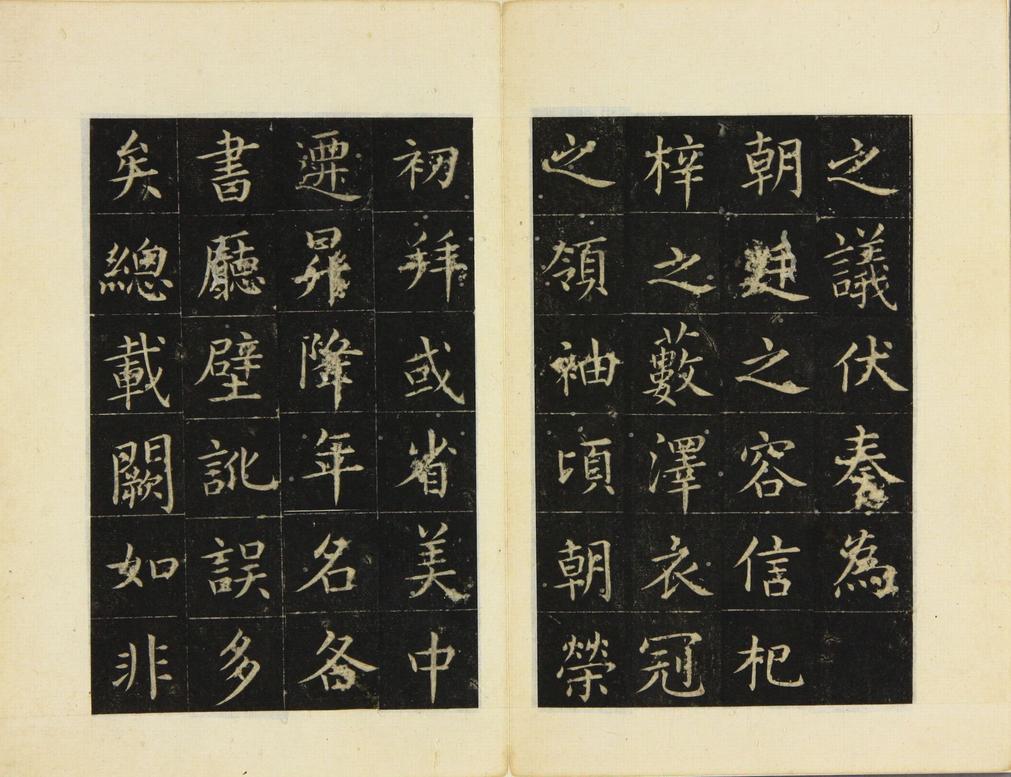 之議伏奏為
朝廷之容信杞
梓之藪澤衣冠
之領袖頃朝榮
初拜或省美中
遷昇降年名各
書廳壁訛誤多
矣總載闕如非